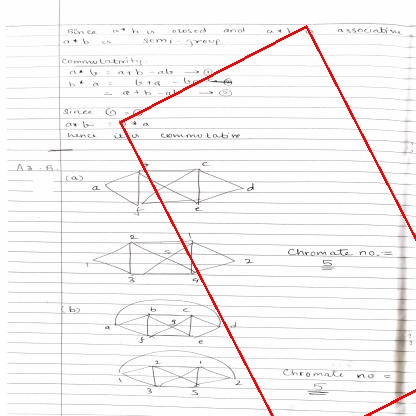 Since a*b is closed and a*b is associative
a*b is semi-group
Commutativity
a*b = a+b-ab → ①
b*a = b+a-
= a+b-ab → ②
Since ①
a*b = b*a
hence it is commutative
A3. B.
(a)
b c
a d
f e
2 1
1 5 2
3 4
Chromate no. = 5
(b)
b c
a g d
f e
2 1
1 2
3 5
Chromate no = 5